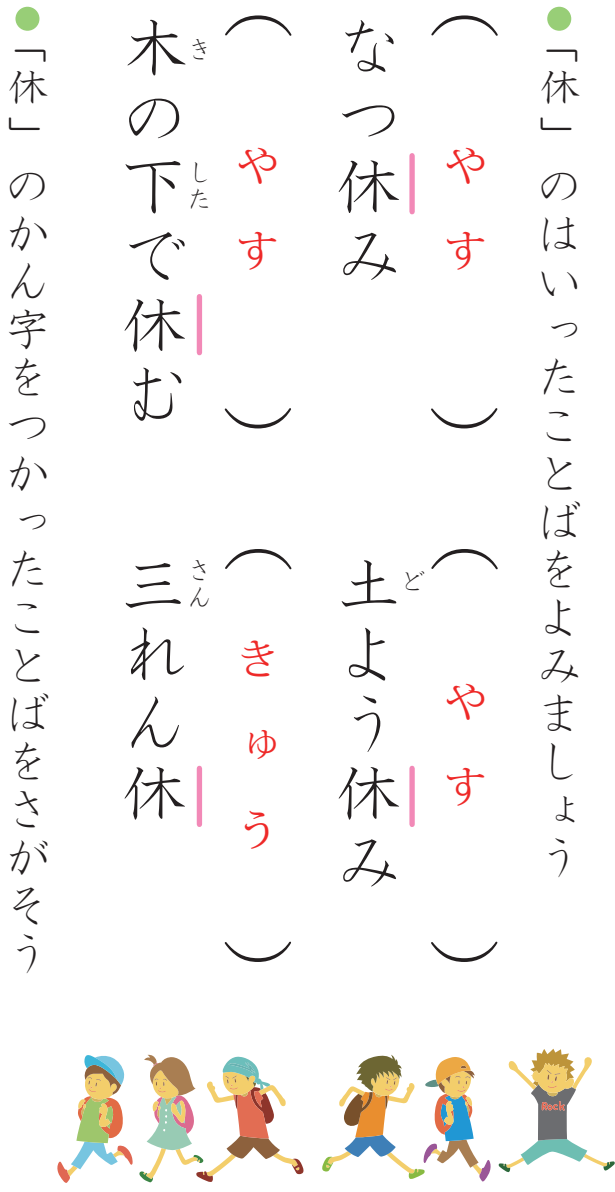 ●「休」のはいったことばをよみましょう
（やす）
なつ休み
（やす）
土よう休み
ど
（やす）
木の下で休む
き
した
（きゅう）
三れん休
さん
●「休」のかん字をつかったことばをさがそう
Rock